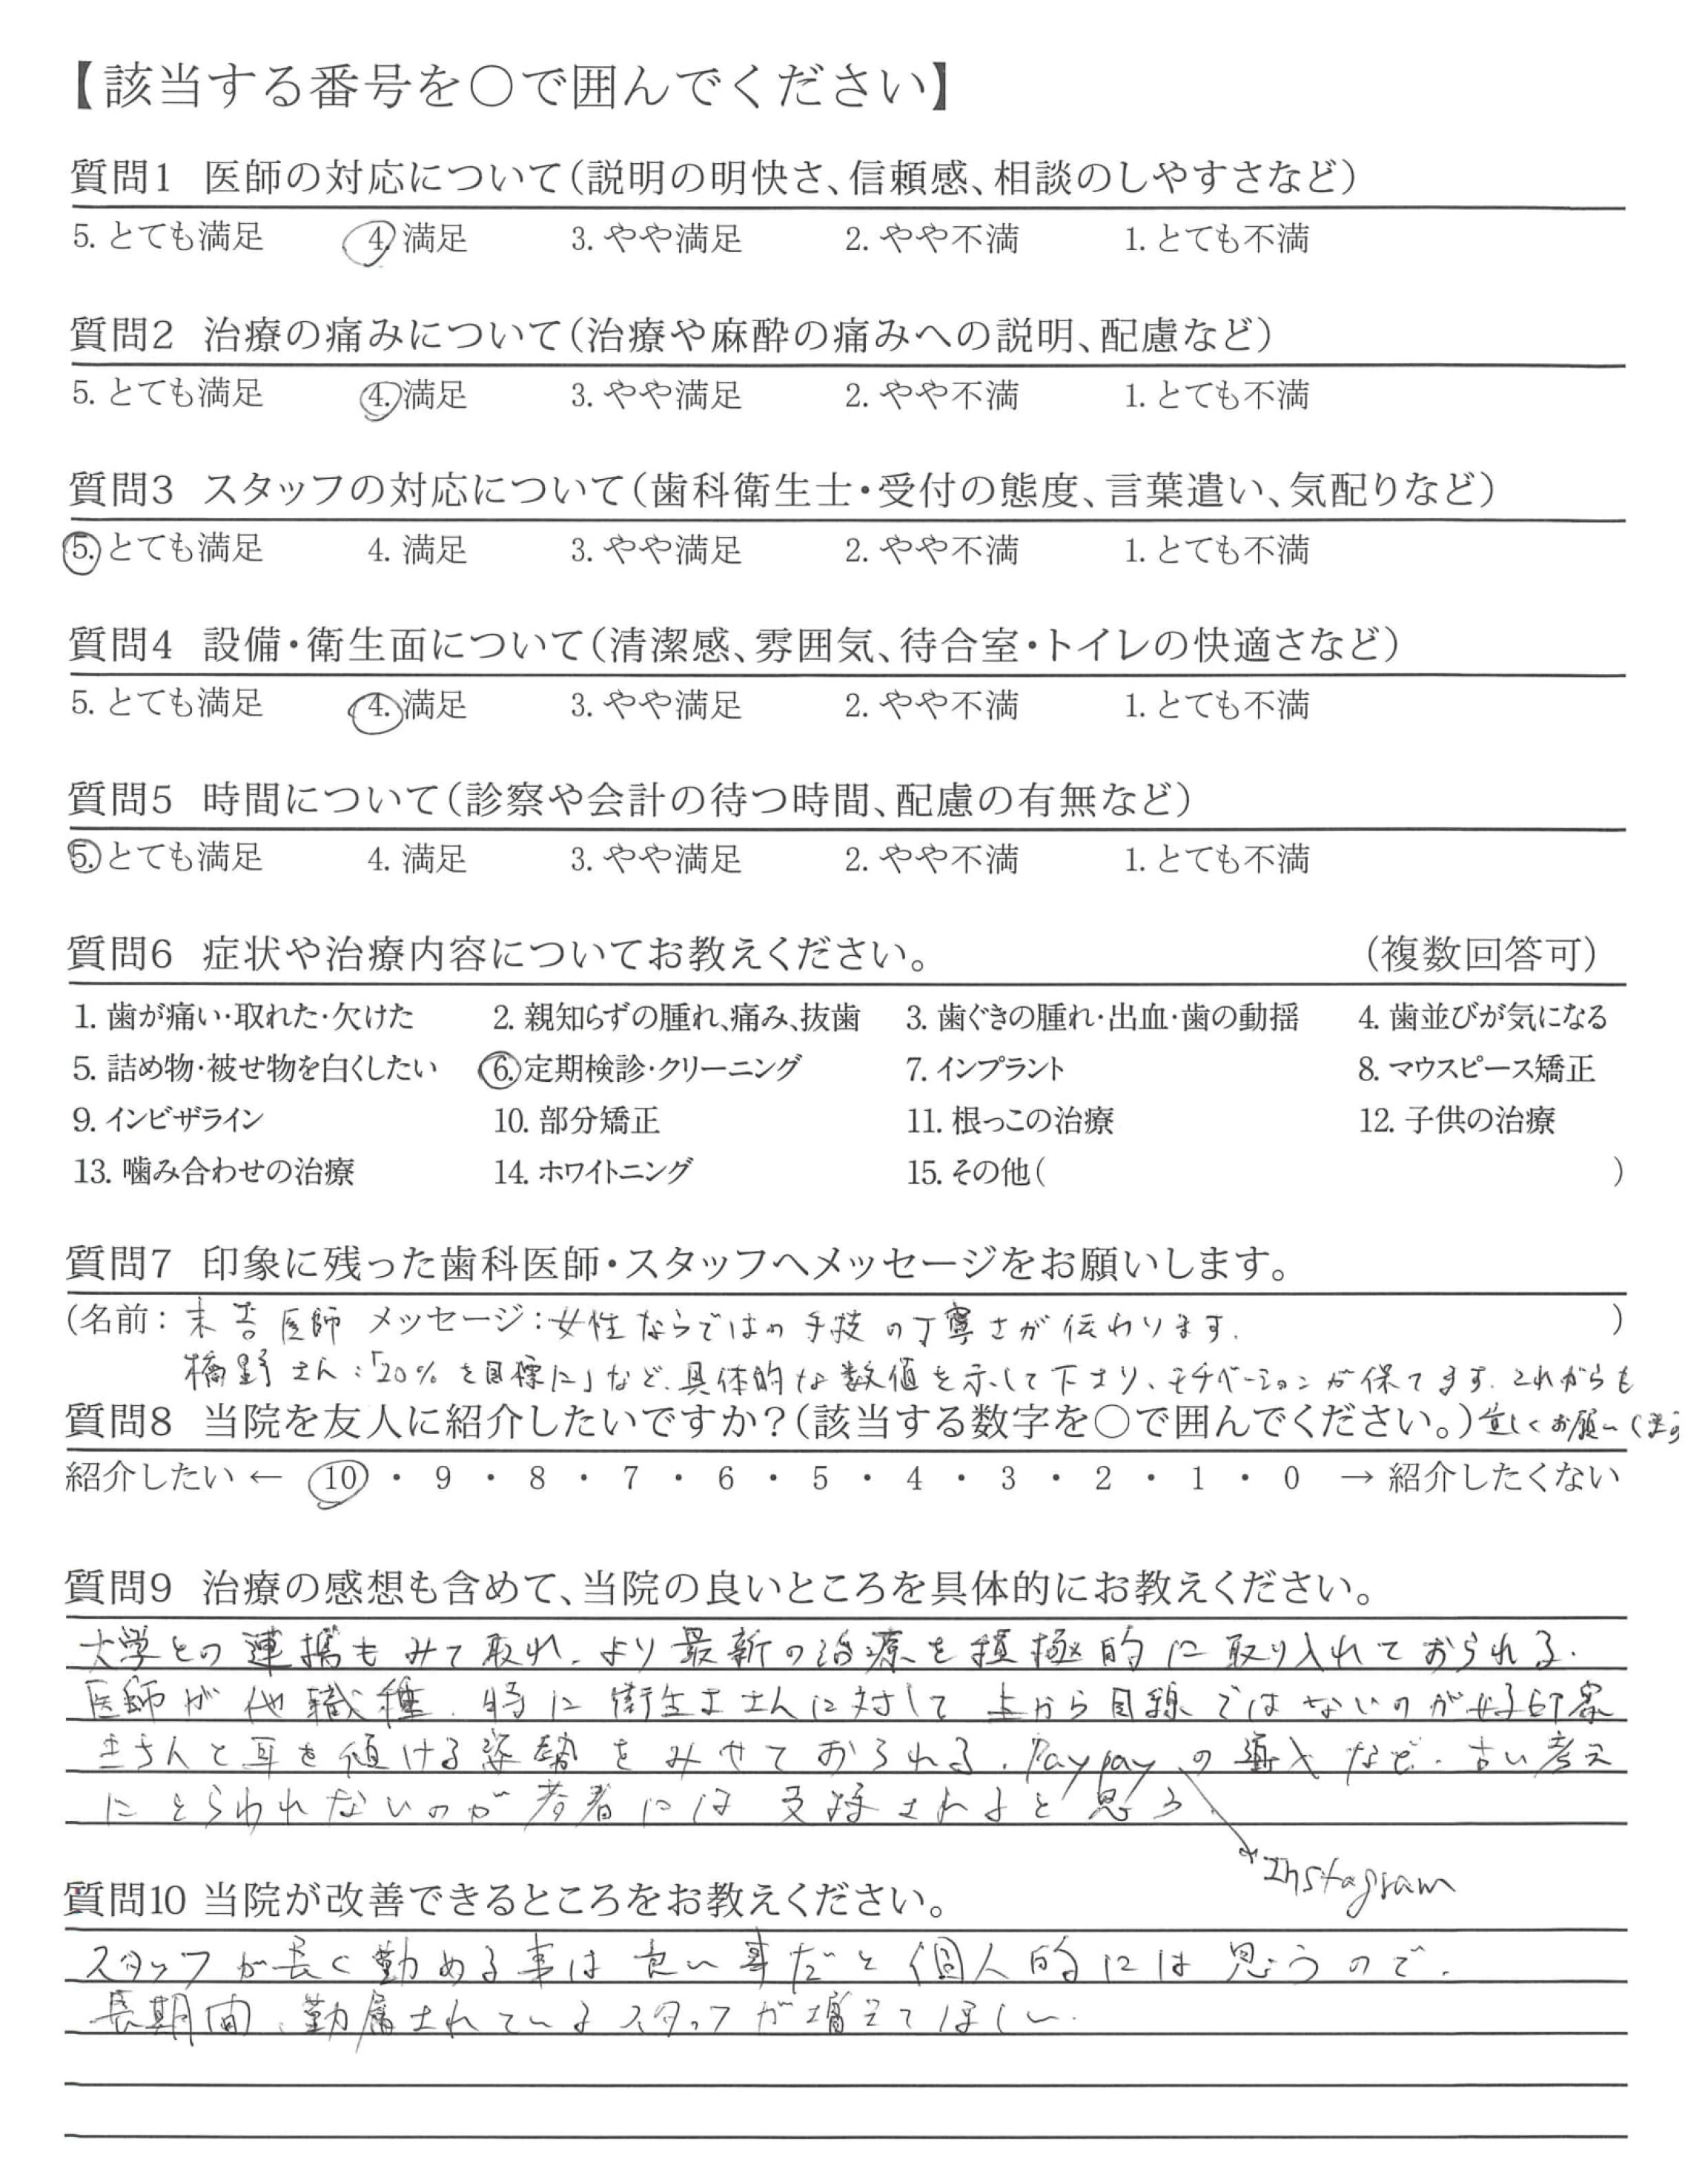 【該当する番号を○で囲んでください】
質問1 医師の対応について(説明の明快さ、信頼感、相談のしやすさなど)
5. とても満足 4. 満足 3. やや満足 2. やや不満 1. とても不満
質問2 治療の痛みについて(治療や麻酔の痛みへの説明、配慮など)
5. とても満足 4. 満足 3. やや満足 2. やや不満 1. とても不満
質問3 スタッフの対応について(歯科衛生士・受付の態度、言葉遣い、気配りなど)
5. とても満足 4. 満足 3. やや満足 2. やや不満 1. とても不満
質問4 設備・衛生面について(清潔感、雰囲気、待合室・トイレの快適さなど)
5. とても満足 4. 満足 3. やや満足 2. やや不満 1. とても不満
質問5 時間について(診察や会計の待つ時間、配慮の有無など)
5. とても満足 4. 満足 3. やや満足 2. やや不満 1. とても不満
質問6 症状や治療内容についてお教えください。 (複数回答可)
1. 歯が痛い・取れた・欠けた 2. 親知らずの腫れ、痛み、抜歯 3. 歯ぐきの腫れ・出血・歯の動揺 4. 歯並びが気になる
5. 詰め物・被せ物を白くしたい 6. 定期検診・クリーニング 7. インプラント 8. マウスピース矯正
9. インビザライン 10. 部分矯正 11. 根っこの治療 12. 子供の治療
13. 噛み合わせの治療 14. ホワイトニング 15. その他( )
質問7 印象に残った歯科医師・スタッフへメッセージをお願いします。
(名前: 末吉医師 メッセージ: 女性ならではの手技の丁寧さが伝わります. )
橋野さん:「20%を目標に」など、具体的な数値を示して下さり、モチベーションが保てます. これからも
質問8 当院を友人に紹介したいですか?(該当する数字を○で囲んでください。) 宜しくお願いします
紹介したい ← 10 ・ 9 ・ 8 ・ 7 ・ 6 ・ 5 ・ 4 ・ 3 ・ 2 ・ 1 ・ 0 → 紹介したくない
質問9 治療の感想も含めて、当院の良いところを具体的にお教えください。
大学との連携もみて取れ、より最新の治療を積極的に取り入れておられる.
医師が他職種、特に衛生士さんに対して上から目線ではないのが好印象
きちんと耳を傾ける姿勢をみせておられる. Paypayの導入など、古い考え
にとらわれないのが若者には支持されると思う.
Instagram
質問10 当院が改善できるところをお教えください。
スタッフが長く勤める事は良い事だと個人的には思うので、
長期間、勤属されているスタッフが増えてほしい.